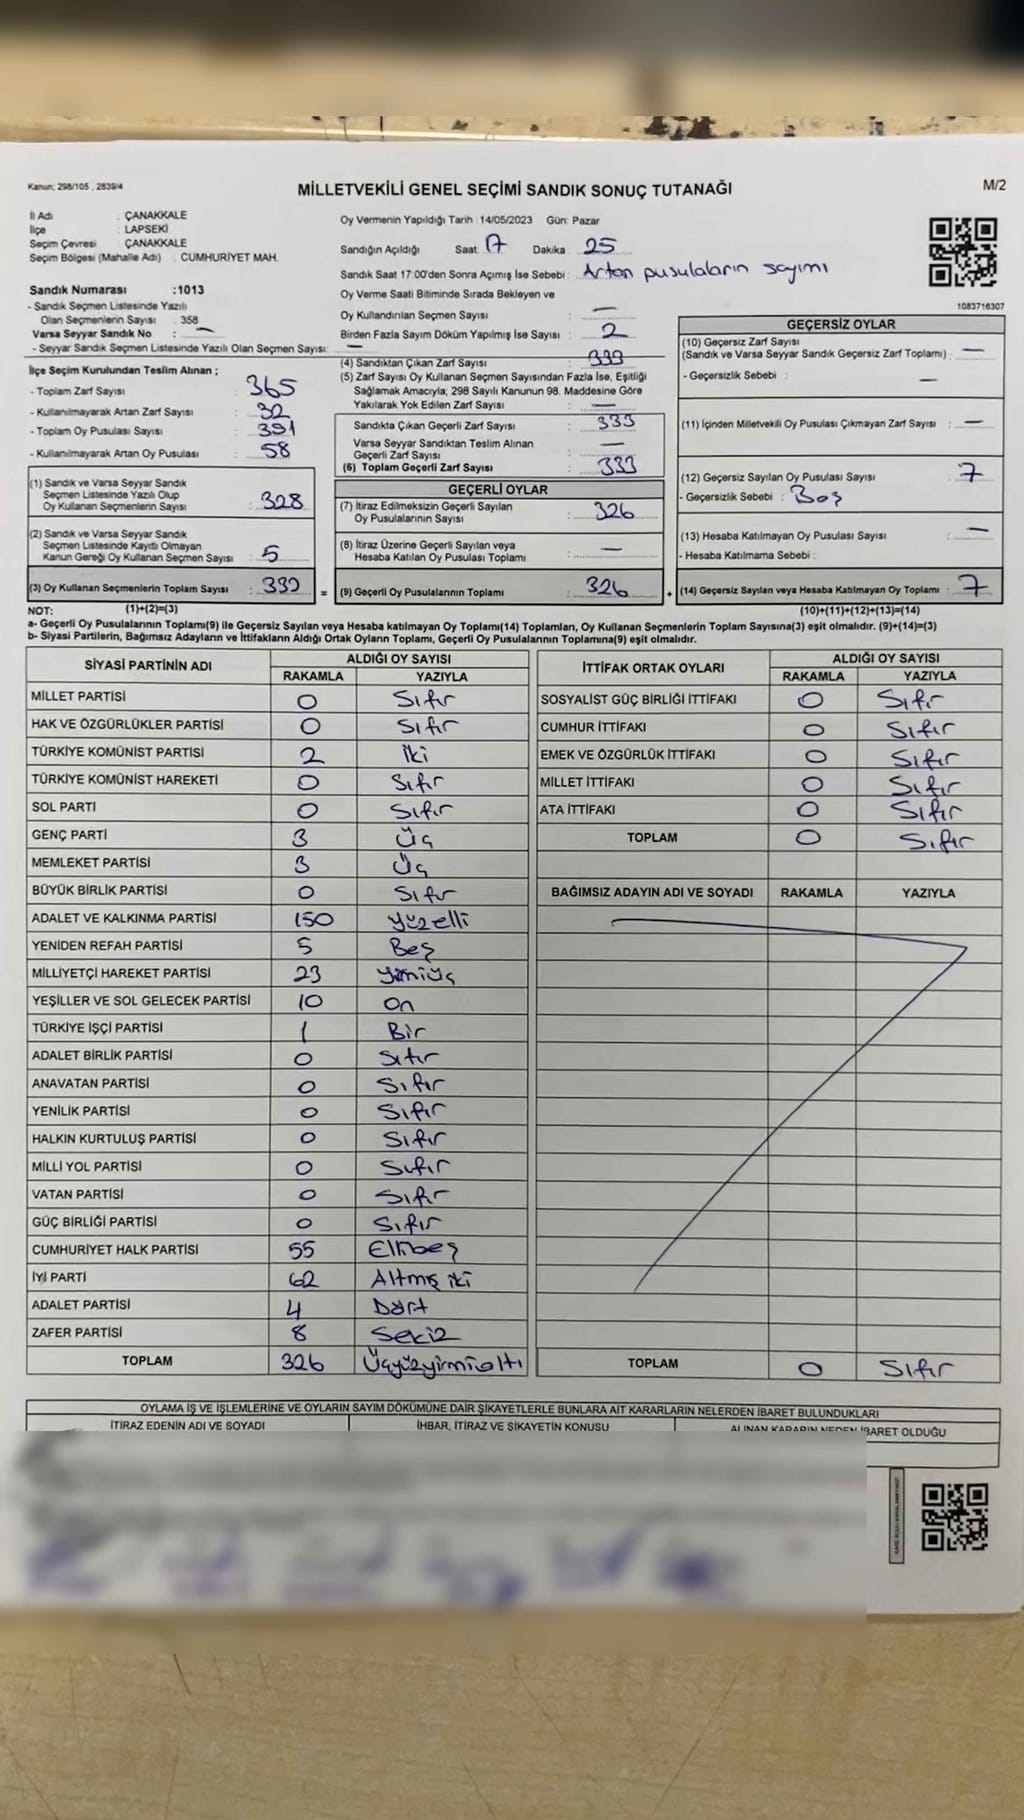 Kanun; 298/105 , 2839/4
MİLLETVEKİLİ GENEL SEÇİMİ SANDIK SONUÇ TUTANAĞI
M/2
İl Adı : ÇANAKKALE
İlçe : LAPSEKİ
Seçim Çevresi : ÇANAKKALE
Seçim Bölgesi (Mahalle Adı) : CUMHURİYET MAH.
Sandık Numarası :1013
- Sandık Seçmen Listesinde Yazılı
Olan Seçmenlerin Sayısı : 358
Varsa Seyyar Sandık No : —
- Seyyar Sandık Seçmen Listesinde Yazılı Olan Seçmen Sayısı: —
Oy Vermenin Yapıldığı Tarih : 14/05/2023 Gün: Pazar
Sandığın Açıldığı Saat: 17 Dakika : 25
Sandık Saat 17:00'den Sonra Açımış İse Sebebi : Artan pusulaların sayımı
Oy Verme Saati Bitiminde Sırada Bekleyen ve
Oy Kullandırılan Seçmen Sayısı : —
Birden Fazla Sayım Döküm Yapılmış İse Sayısı : 2
1083716307
İlçe Seçim Kurulundan Teslim Alınan ;
- Toplam Zarf Sayısı : 365
- Kullanılmayarak Artan Zarf Sayısı : 32
- Toplam Oy Pusulası Sayısı : 391
- Kullanılmayarak Artan Oy Pusulası : 58
(1) Sandık ve Varsa Seyyar Sandık
Seçmen Listesinde Yazılı Olup
Oy Kullanan Seçmenlerin Sayısı : 328
(2) Sandık ve Varsa Seyyar Sandık
Seçmen Listesinde Kayıtlı Olmayan
Kanun Gereği Oy Kullanan Seçmen Sayısı : 5
(3) Oy Kullanan Seçmenlerin Toplam Sayısı : 333 =
(4) Sandıktan Çıkan Zarf Sayısı : 333
(5) Zarf Sayısı Oy Kullanan Seçmen Sayısından Fazla İse, Eşitliği
Sağlamak Amacıyla; 298 Sayılı Kanunun 98. Maddesine Göre
Yakılarak Yok Edilen Zarf Sayısı : —
Sandıkta Çıkan Geçerli Zarf Sayısı : 333
Varsa Seyyar Sandıktan Teslim Alınan
Geçerli Zarf Sayısı : —
(6) Toplam Geçerli Zarf Sayısı : 333
GEÇERLİ OYLAR
(7) İtiraz Edilmeksizin Geçerli Sayılan
Oy Pusulalarının Sayısı : 326
(8) İtiraz Üzerine Geçerli Sayılan veya
Hesaba Katılan Oy Pusulası Toplamı : —
(9) Geçerli Oy Pusulalarının Toplamı : 326 +
GEÇERSİZ OYLAR
(10) Geçersiz Zarf Sayısı
(Sandık ve Varsa Seyyar Sandık Geçersiz Zarf Toplamı) : —
- Geçersizlik Sebebi : —
(11) İçinden Milletvekili Oy Pusulası Çıkmayan Zarf Sayısı : —
(12) Geçersiz Sayılan Oy Pusulası Sayısı : 7
- Geçersizlik Sebebi : Boş
(13) Hesaba Katılmayan Oy Pusulası Sayısı : —
- Hesaba Katılmama Sebebi :
(14) Geçersiz Sayılan veya Hesaba Katılmayan Oy Toplamı : 7
NOT: (1)+(2)=(3) (10)+(11)+(12)+(13)=(14)
a- Geçerli Oy Pusulalarının Toplamı(9) ile Geçersiz Sayılan veya Hesaba katılmayan Oy Toplamı(14) Toplamları, Oy Kullanan Seçmenlerin Toplam Sayısına(3) eşit olmalıdır. (9)+(14)=(3)
b- Siyasi Partilerin, Bağımsız Adayların ve İttifakların Aldığı Ortak Oyların Toplamı, Geçerli Oy Pusulalarının Toplamına(9) eşit olmalıdır.
SİYASİ PARTİNİN ADI ALDIĞI OY SAYISI
RAKAMLA YAZIYLA
MİLLET PARTİSİ 0 Sıfır
HAK VE ÖZGÜRLÜKLER PARTİSİ 0 Sıfır
TÜRKİYE KOMÜNİST PARTİSİ 2 İki
TÜRKİYE KOMÜNİST HAREKETİ 0 Sıfır
SOL PARTİ 0 Sıfır
GENÇ PARTİ 3 Üç
MEMLEKET PARTİSİ 3 Üç
BÜYÜK BİRLİK PARTİSİ 0 Sıfır
ADALET VE KALKINMA PARTİSİ 150 Yüzelli
YENİDEN REFAH PARTİSİ 5 Beş
MİLLİYETÇİ HAREKET PARTİSİ 23 Yirmiüç
YEŞİLLER VE SOL GELECEK PARTİSİ 10 On
TÜRKİYE İŞÇİ PARTİSİ 1 Bir
ADALET BİRLİK PARTİSİ 0 Sıfır
ANAVATAN PARTİSİ 0 Sıfır
YENİLİK PARTİSİ 0 Sıfır
HALKIN KURTULUŞ PARTİSİ 0 Sıfır
MİLLİ YOL PARTİSİ 0 Sıfır
VATAN PARTİSİ 0 Sıfır
GÜÇ BİRLİĞİ PARTİSİ 0 Sıfır
CUMHURİYET HALK PARTİSİ 55 Ellibeş
İYİ PARTİ 62 Altmış iki
ADALET PARTİSİ 4 Dört
ZAFER PARTİSİ 8 Sekiz
TOPLAM 326 Üçyüzyirmialtı
İTTİFAK ORTAK OYLARI ALDIĞI OY SAYISI
RAKAMLA YAZIYLA
SOSYALİST GÜÇ BİRLİĞİ İTTİFAKI 0 Sıfır
CUMHUR İTTİFAKI 0 Sıfır
EMEK VE ÖZGÜRLÜK İTTİFAKI 0 Sıfır
MİLLET İTTİFAKI 0 Sıfır
ATA İTTİFAKI 0 Sıfır
TOPLAM 0 Sıfır
BAĞIMSIZ ADAYIN ADI VE SOYADI RAKAMLA YAZIYLA
TOPLAM 0 Sıfır
OYLAMA İŞ VE İŞLEMLERİNE VE OYLARIN SAYIM DÖKÜMÜNE DAİR ŞİKAYETLERLE BUNLARA AİT KARARLARIN NELERDEN İBARET BULUNDUKLARI
İTİRAZ EDENİN ADI VE SOYADI İHBAR, İTİRAZ VE ŞİKAYETİN KONUSU ALINAN KARARIN NEDEN İBARET OLDUĞU